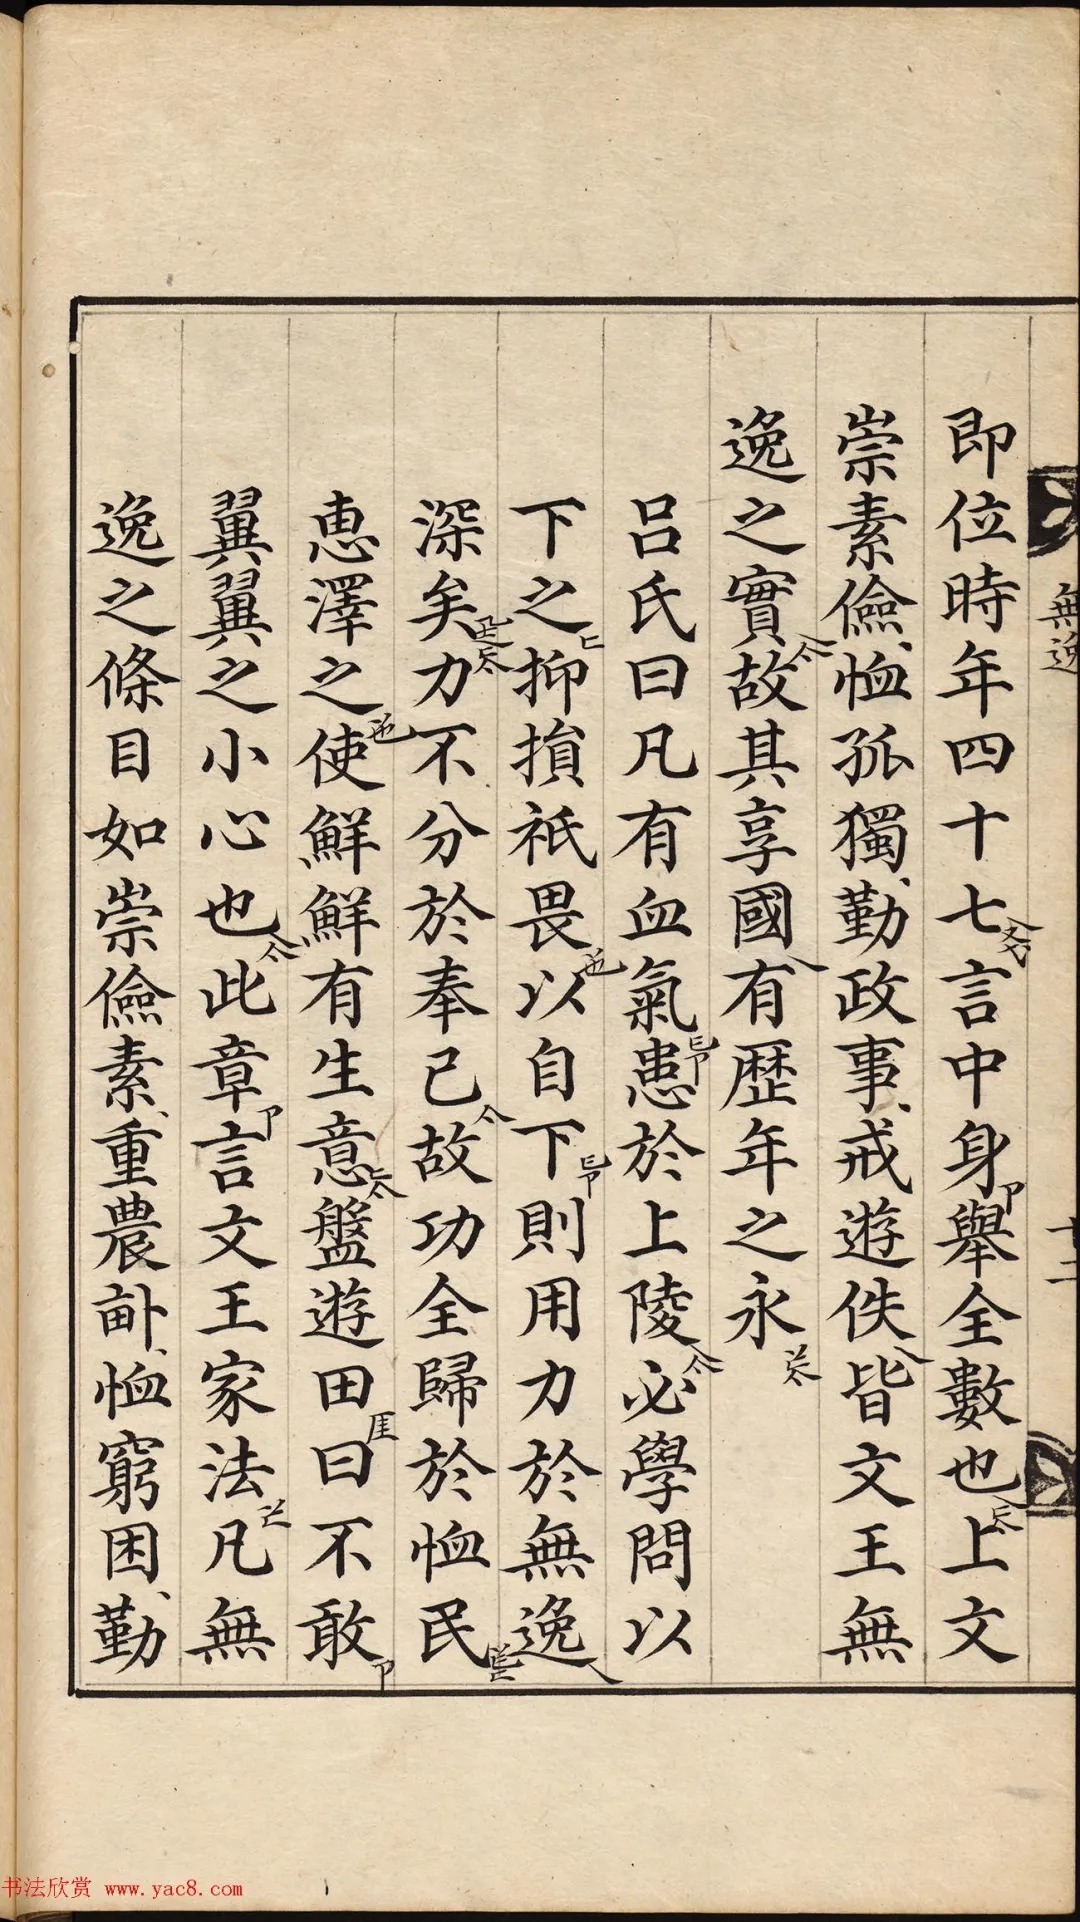 即位時年四十七言中身舉全數也上文
崇素儉恤孤獨勤政事戒遊佚皆文王無
逸之實故其享國有歷年之永
呂氏曰凡有血氣患於上陵必學問以
下之抑損祗畏以自下則用力於無逸
深矣力不分於奉己故功全歸於恤民
惠澤之使鮮鮮有生意盤遊田曰不敢
翼翼之小心也此章言文王家法凡無
逸之條目如崇儉素重農畝恤窮困勤
無逸
十二
书法欣赏 www.yac8.com